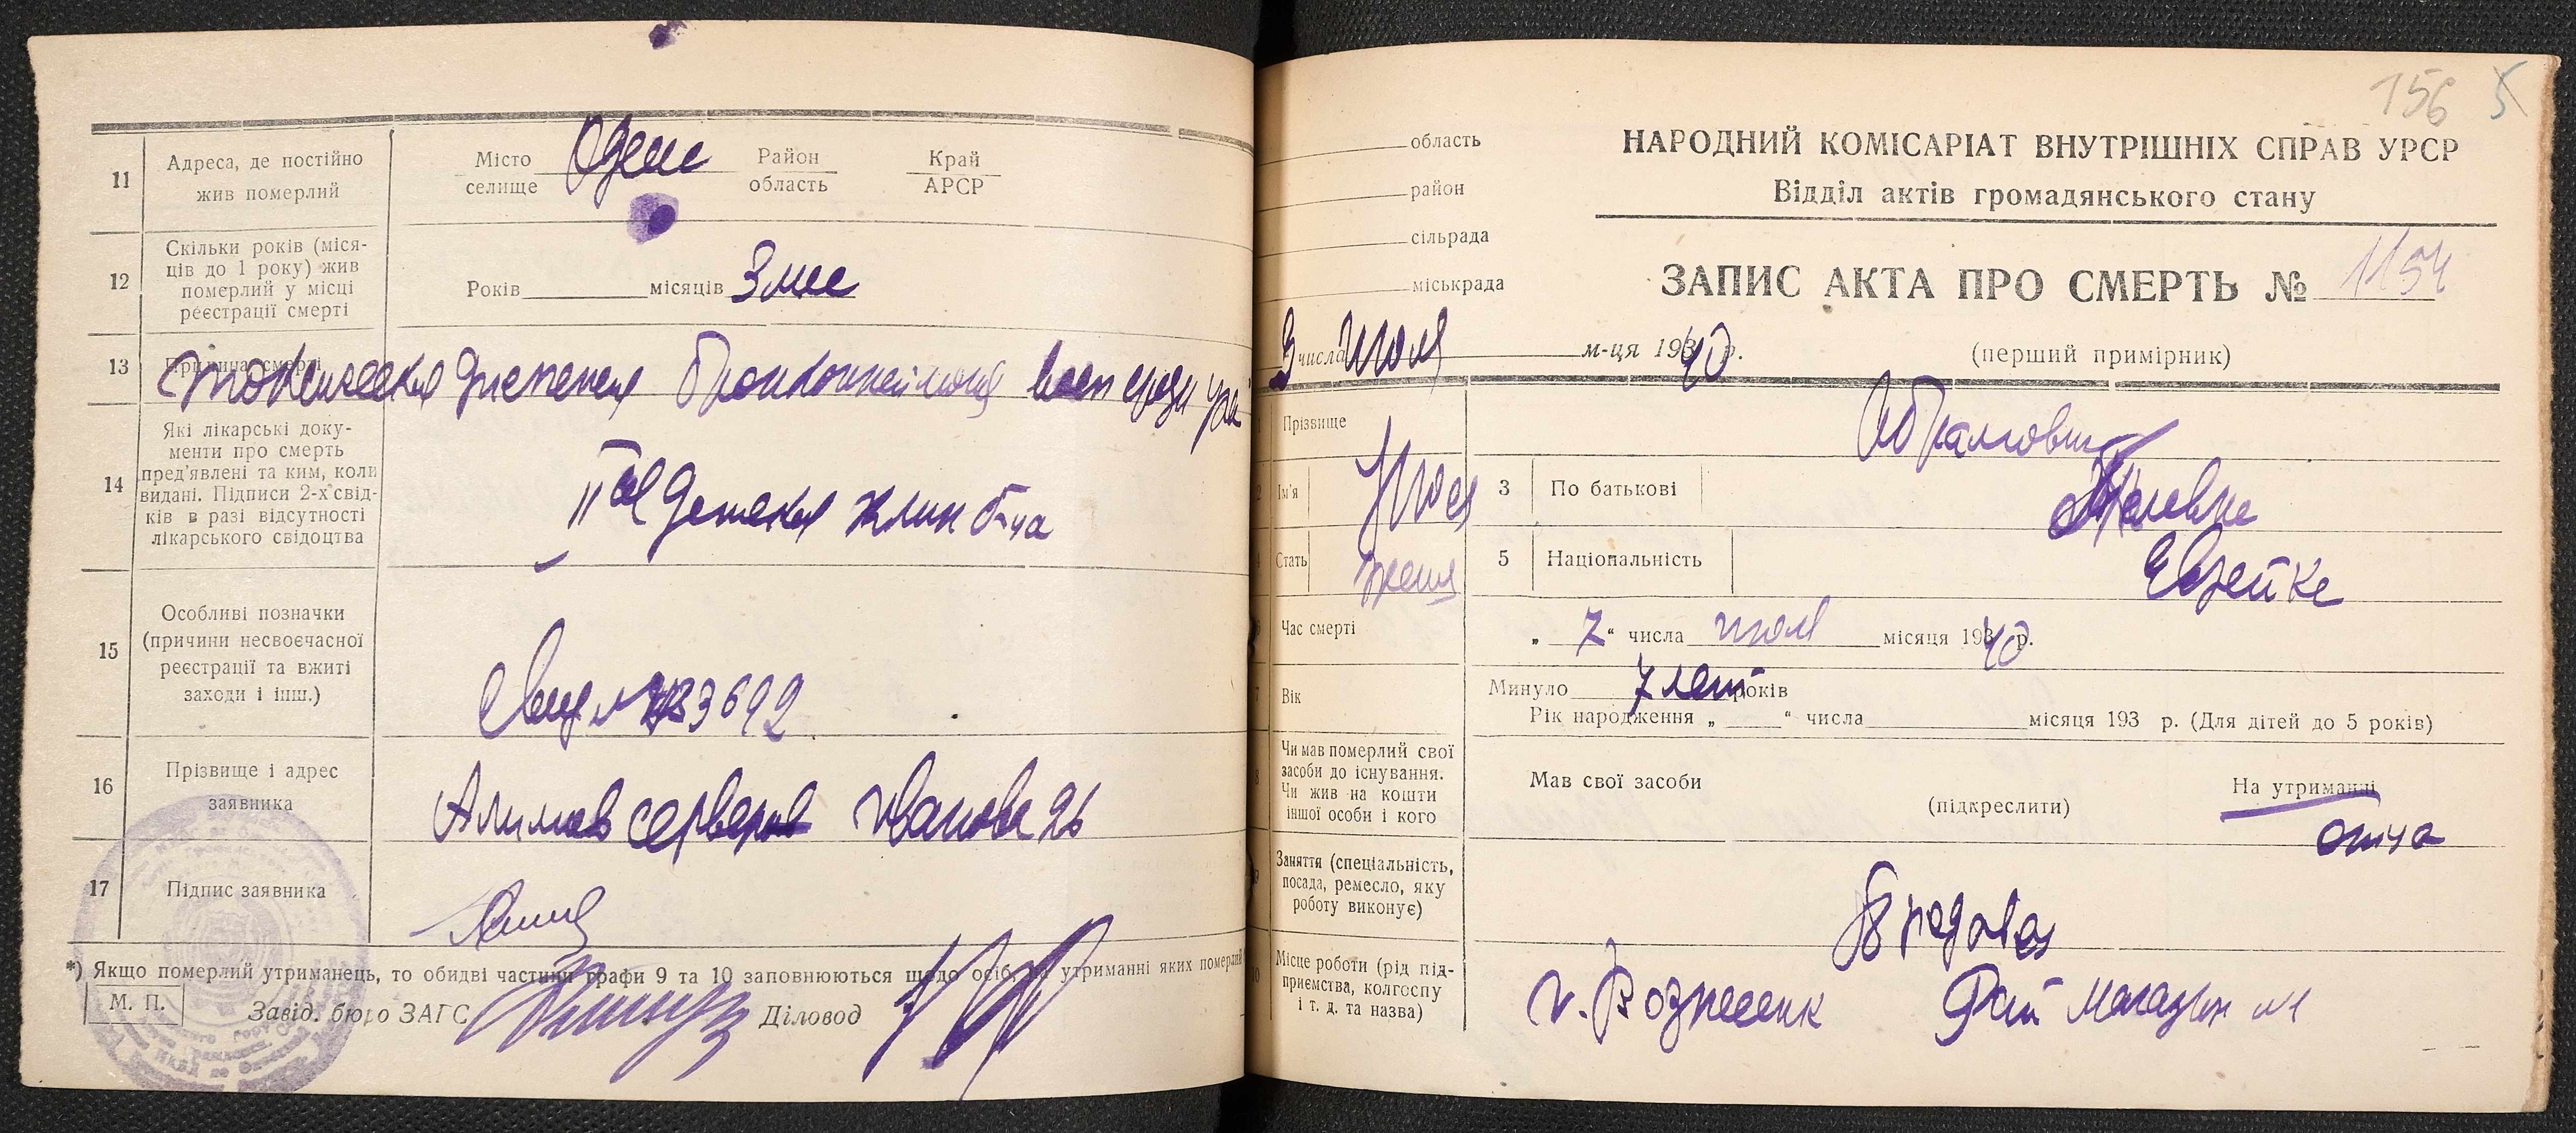 11
Адреса, де постійно
жив померлий
Місто
селище
Одеса
Район
область
Край
АРСР
12
Скільки років (міся-
ців до 1 року) жив
померлий у місці
реєстрації смерті
Років
місяців 3 мес
13
Причина смерті
14
Які лікарські доку-
менти про смерть
пред'явлені та ким, коли
видані. Підписи 2-х свід-
ків в разі відсутності
лікарського свідоцтва
II ая детская клин б-ца
15
Особливі позначки
(причини несвоєчасної
реєстрації та вжиті
заходи і інш.)
3692
16
Прізвище і адрес
заявника
26
17
Підпис заявника
*) Якщо померлий утриманець, то обидві частини графи 9 та 10 заповнюються щодо осіб, на утриманні яких померлий
М. П.
Завід. бюро ЗАГС
Діловод
156
область
район
сільрада
міськрада
числа июля м-ця 1940 р.
НАРОДНИЙ КОМІСАРІАТ ВНУТРІШНІХ СПРАВ УРСР
Відділ актів громадянського стану
ЗАПИС АКТА ПРО СМЕРТЬ № 1154
(перший примірник)
Прізвище
Абрамович
Ім'я
3
По батькові
Стать
5
Національність
Еврейке
Час смерті
„ 7 “ числа июля місяця 1940 р.
Вік
Минуло 7 лет років
Рік народження „ “ числа місяця 193 р. (Для дітей до 5 років)
Чи мав померлий свої
засоби до існування.
Чи жив на кошти
іншої особи і кого
Мав свої засоби
(підкреслити)
На утриманні
отца
Заняття (спеціальність,
посада, ремесло, яку
роботу виконує)
Місце роботи (рід під-
приємства, колгоспу
і т. д. та назва)
г. Вознесенк магазин №1